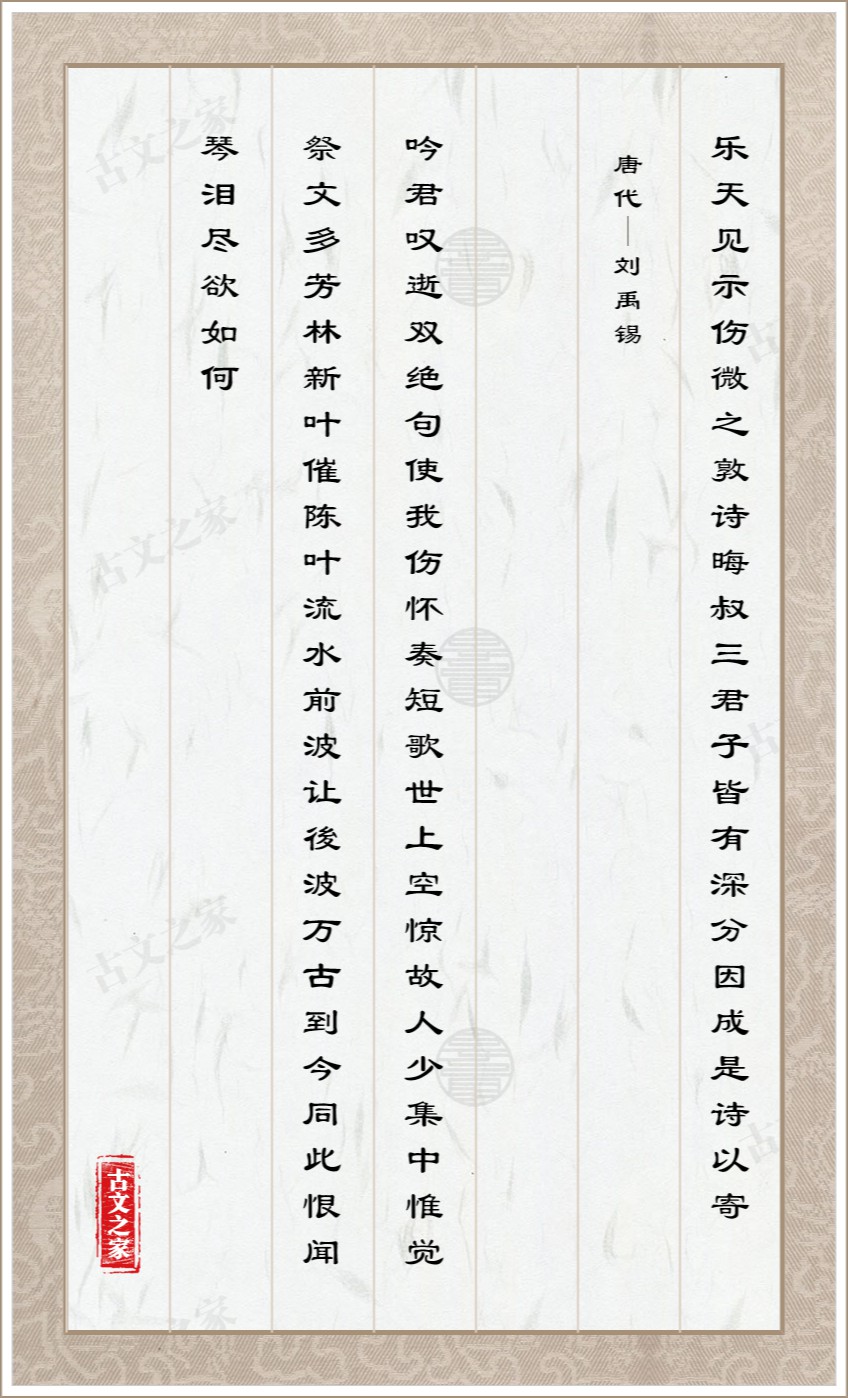 乐天见示伤微之敦诗晦叔三君子皆有深分因成是诗以寄
唐代—刘禹锡
吟君叹逝双绝句使我伤怀奏短歌世上空惊故人少集中惟觉
祭文多芳林新叶催陈叶流水前波让後波万古到今同此恨闻
琴泪尽欲如何
古文之家
古文之家
古文之家
古文之家